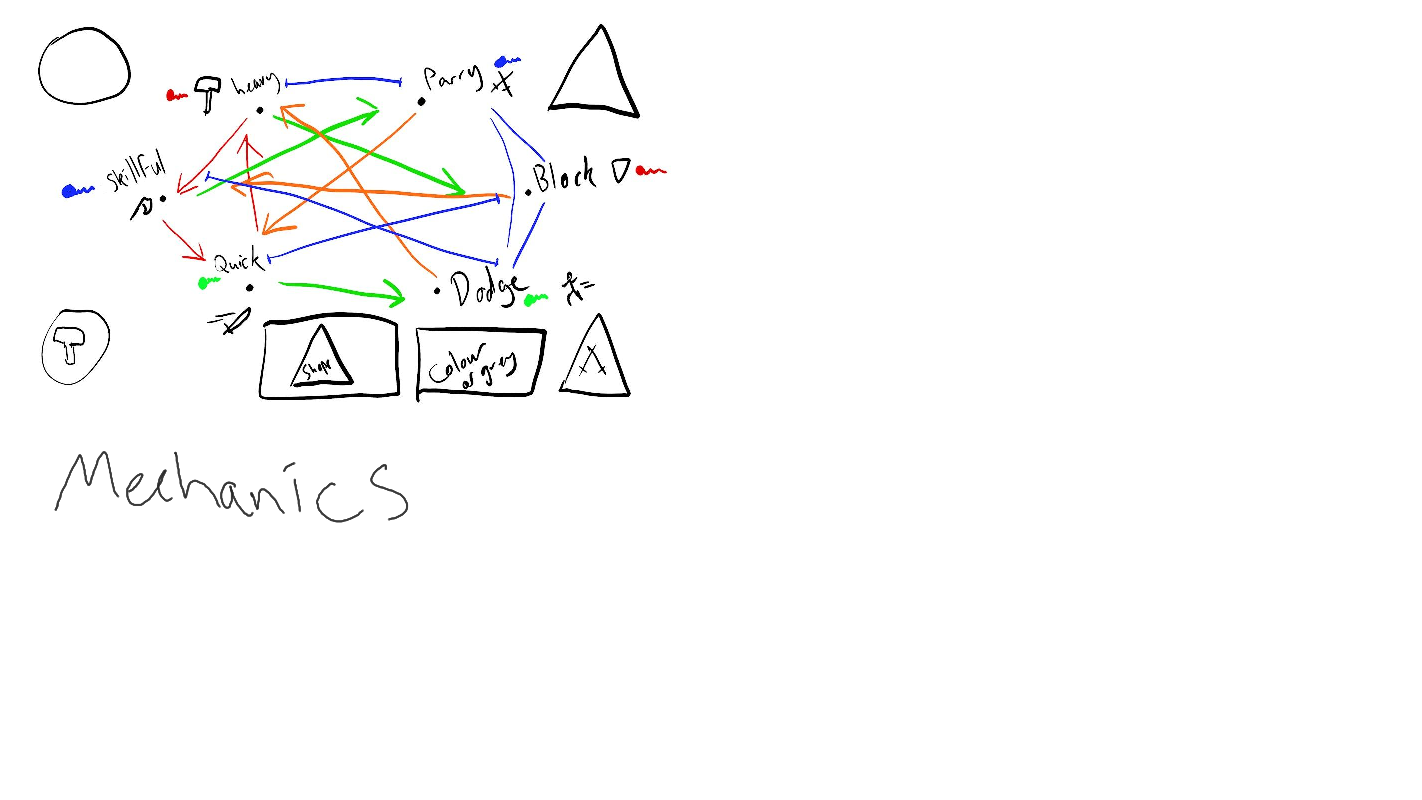 heavy
Parry
Skillful
Block
Quick
Dodge
Shape
Colour
or grey
Mechanics